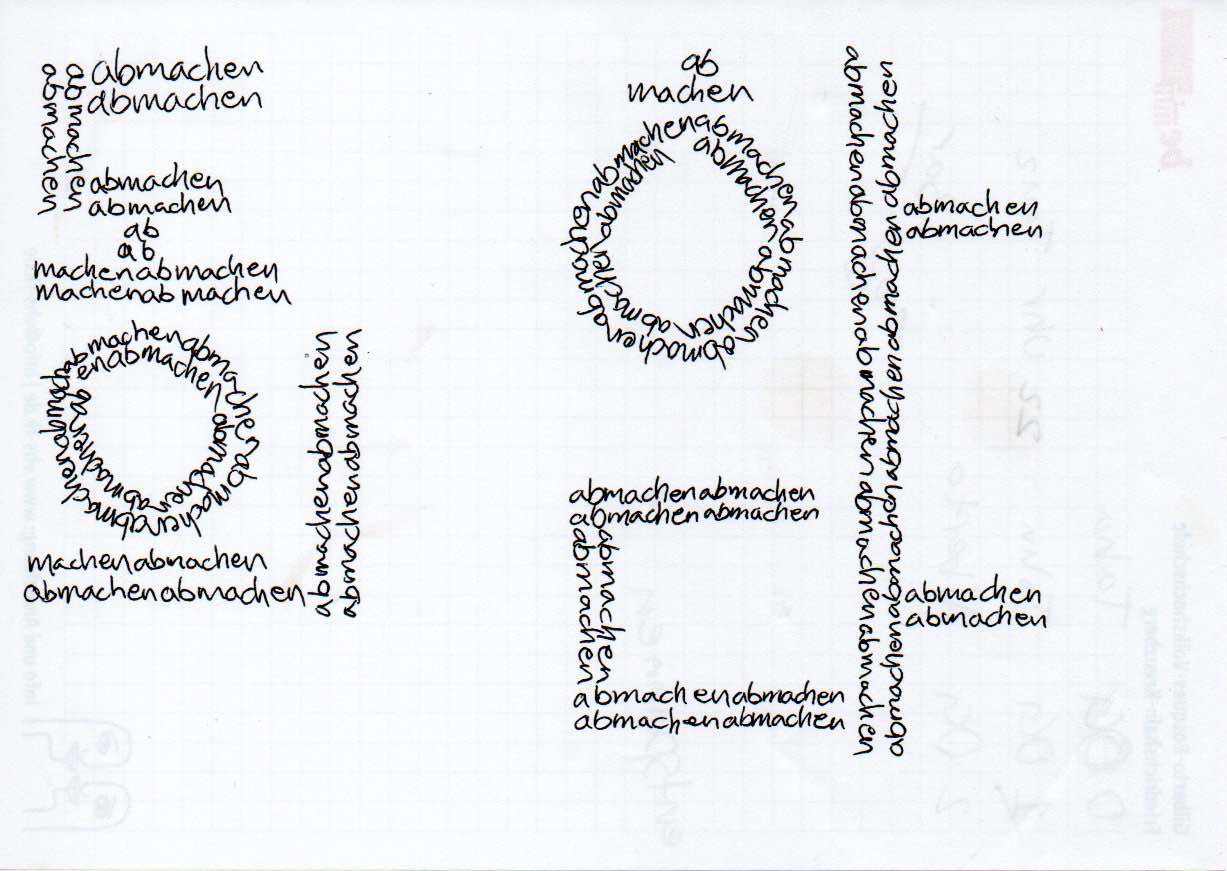 abmachen
abmachen
abmachen
abmachen
abmachen
abmachen
ab
ab
machenabmachen
machenabmachen
abmachenabmachenabmachenabmachenabmachen
machenabmachen
abmachenabmachen
abmachenabmachen
abmachenabmachen
ab
machen
abmachenabmachenabmachenabmachenabmachen
abmachen abmachen abmachen abmachen abmachen
abmachenabmachen
abmachenabmachen
abmachen
abmachen
abmachenabmachen
abmachenabmachen
abmachenabmachenabmachenabmachenabmachenabmachen
abmachenabmachenabmachenabmachenabmachenabmachen
abmachen
abmachen
abmachen
abmachen